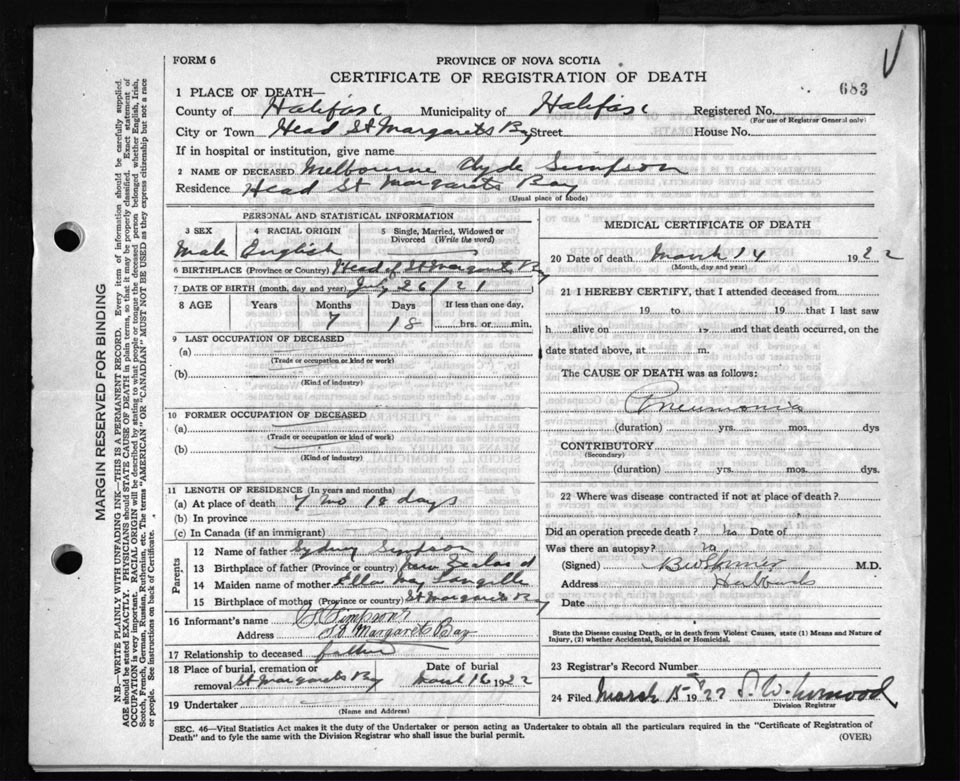 FORM 6
PROVINCE OF NOVA SCOTIA
CERTIFICATE OF REGISTRATION OF DEATH
683
1 PLACE OF DEATH—
County of Halifax Municipality of Halifax Registered No.
(For use of Registrar General only)
City or Town Head St Margarets Bay Street House No.
If in hospital or institution, give name
2 NAME OF DECEASED Melbourne Clyde Simpson
Residence Head St Margarets Bay
(Usual place of abode)
PERSONAL AND STATISTICAL INFORMATION
3 SEX 4 RACIAL ORIGIN 5 Single, Married, Widowed or Divorced (Write the word)
Male English
6 BIRTHPLACE (Province or Country) Head of St Margarets Bay
7 DATE OF BIRTH (month, day and year) July 26/21
8 AGE Years Months Days If less than one day,
7 18 hrs. or min.
9 LAST OCCUPATION OF DECEASED
(a)
(Trade or occupation or kind of work)
(b)
(Kind of industry)
10 FORMER OCCUPATION OF DECEASED
(a)
(Trade or occupation or kind of work)
(b)
(Kind of industry)
11 LENGTH OF RESIDENCE (In years and months)
(a) At place of death 7 mo 18 days
(b) In province
(c) In Canada (if an immigrant)
Parents
12 Name of father Sydney Simpson
13 Birthplace of father (Province or country) New Zealand
14 Maiden name of mother Ella May Langille
15 Birthplace of mother (Province or country) St Margarets Bay
16 Informant's name S Simpson
Address St Margarets Bay
17 Relationship to deceased father
18 Place of burial, cremation or removal St Margarets Bay Date of burial March 16 1922
19 Undertaker
(Name and Address)
MEDICAL CERTIFICATE OF DEATH
20 Date of death March 14 1922
(Month, day and year)
21 I HEREBY CERTIFY, that I attended deceased from
19 to 19 that I last saw
h alive on 19 and that death occurred, on the
date stated above, at m.
The CAUSE OF DEATH was as follows:
Pneumonia
(duration) yrs. mos. dys
CONTRIBUTORY
(Secondary)
(duration) yrs. mos. dys.
22 Where was disease contracted if not at place of death?
Did an operation precede death? No Date of
Was there an autopsy? no
(Signed) M.D.
Address Hubbards
Date
State the Disease causing Death, or in death from Violent Causes, state (1) Means and Nature of
Injury, (2) whether Accidental, Suicidal or Homicidal.
23 Registrar's Record Number
24 Filed March 15 1922
Division Registrar
SEC. 46—Vital Statistics Act makes it the duty of the Undertaker or person acting as Undertaker to obtain all the particulars required in the "Certificate of Registration of
Death" and to fyle the same with the Division Registrar who shall issue the burial permit.
(OVER)
MARGIN RESERVED FOR BINDING
N.B.—WRITE PLAINLY WITH UNFADING INK—THIS IS A PERMANENT RECORD. Every item of information should be carefully supplied.
AGE should be stated EXACTLY. PHYSICIANS should STATE CAUSE OF DEATH in plain terms, so that it may be properly classified. Exact statement of
OCCUPATION is very important. RACIAL ORIGIN will be described by stating to what people or tongue the deceased person belonged whether English, Irish,
Scotch, French, German, Russian, Ruthenian, etc. The terms "AMERICAN" OR "CANADIAN" MUST NOT BE USED as they express citizenship but not a race
or people. See instructions on back of Certificate.